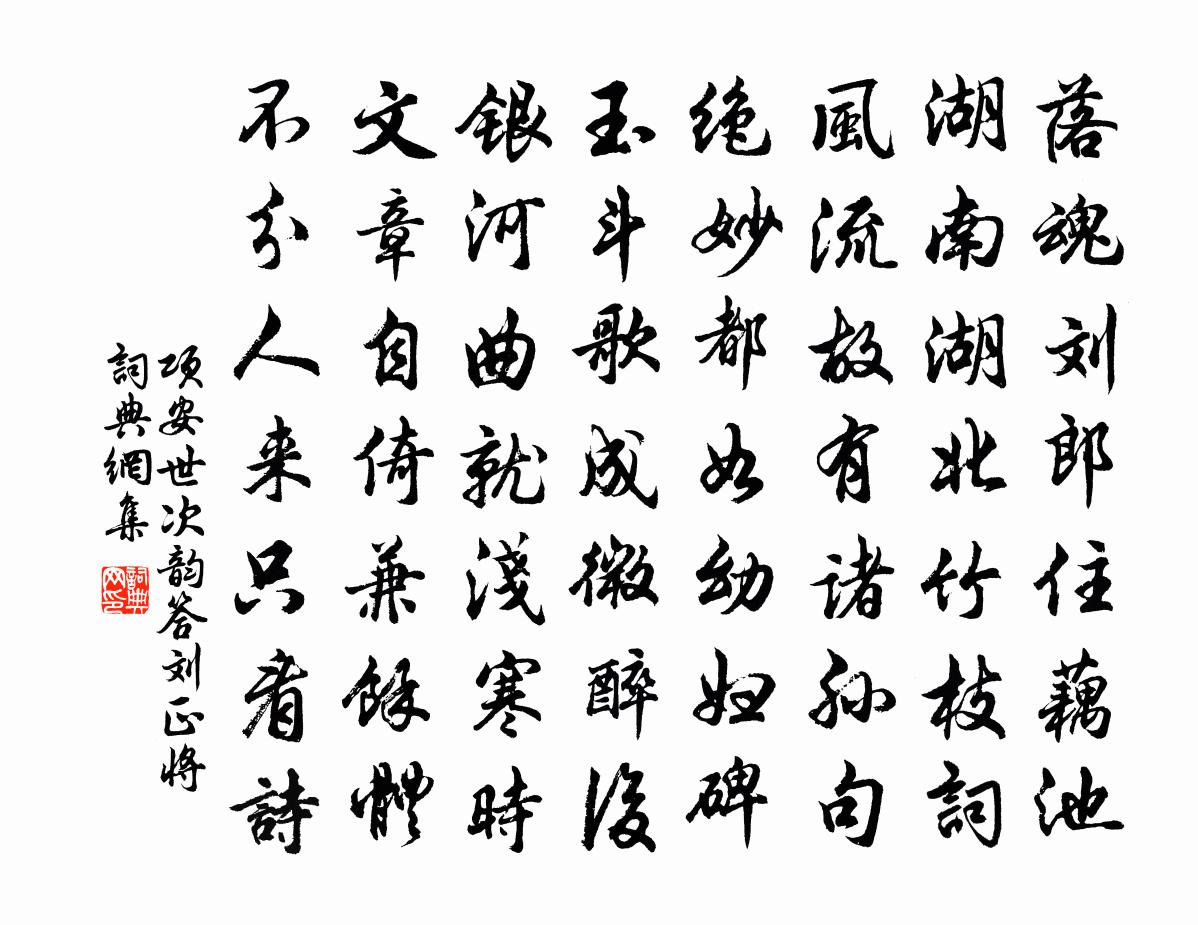 落魂刘郎住藕池
湖南湖北竹枝詞
風流故有诸孙句
绝妙都如幼妇碑
玉斗歌成微醉後
銀河曲就淺寒時
文章自倚兼餘體
不分人来只看詩
项安世次韵答刘正将
詞典網集
詞典网印